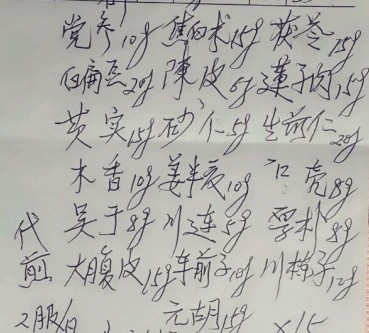 党参10g 焦白术15g 茯苓15g
白扁豆20g 陳皮6g 莲子肉15g
芡实15g 砂仁5g 生苡仁20g
木香10g 姜半夏10g 口壳18g
吴于8g 川连5g 厚朴8g
代煎 大腹皮15g 车前子10g 川楝子12g
2服/日 元胡15g ×15